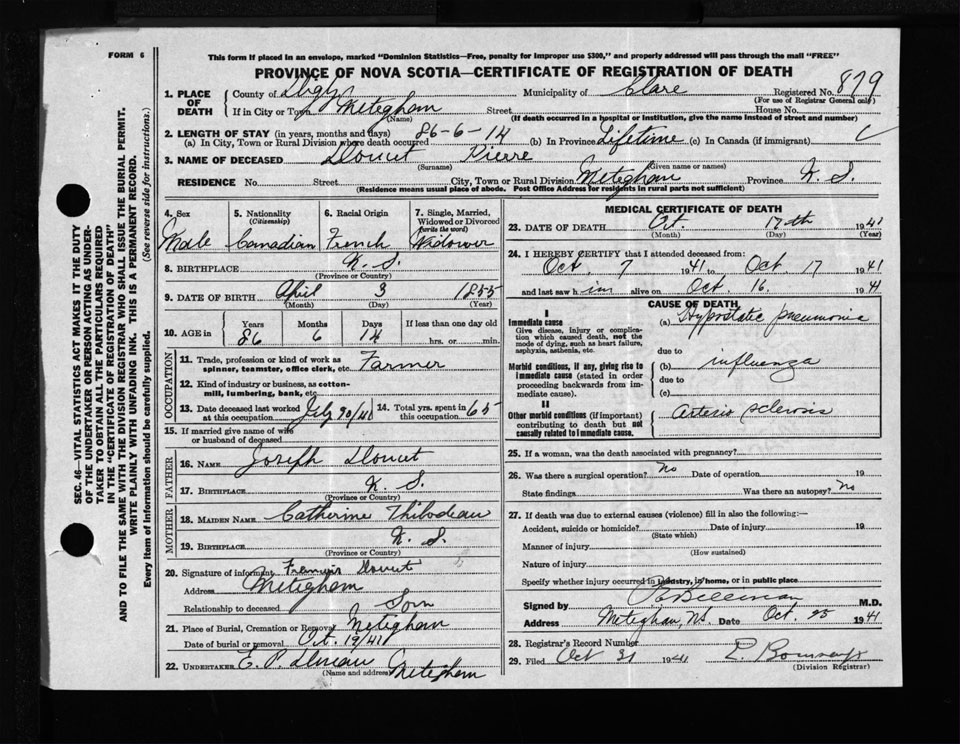 FORM 6
This form if placed in an envelope, marked "Dominion Statistics—Free, penalty for improper use $300," and properly addressed will pass through the mail "FREE"
PROVINCE OF NOVA SCOTIA—CERTIFICATE OF REGISTRATION OF DEATH
1. PLACE OF DEATH County of Digby Municipality of Clare Registered No. 879
(For use of Registrar General only)
If in City or Town Meteghan Street House No.
(Name) (If death occurred in a hospital or institution, give the name instead of street and number)
2. LENGTH OF STAY (in years, months and days)
(a) In City, Town or Rural Division where death occurred 86-6-14 (b) In Province Lifetime (c) In Canada (if immigrant)
3. NAME OF DECEASED Doucet Pierre
(Surname) (Given name or names)
RESIDENCE No. Street City, Town or Rural Division Meteghan Province N. S.
(Residence means usual place of abode. Post Office Address for residents in rural parts not sufficient)
4. Sex 5. Nationality 6. Racial Origin 7. Single, Married,
(Citizenship) Widowed or Divorced
(write the word)
Male Canadian French Widower
8. BIRTHPLACE N. S.
(Province or Country)
9. DATE OF BIRTH April 3 1855
(Month) (Day) (Year)
10. AGE in Years Months Days If less than one day old
86 6 14 hrs. or min.
OCCUPATION
11. Trade, profession or kind of work as
spinner, teamster, office clerk, etc. Farmer
12. Kind of industry or business, as cotton-
mill, lumbering, bank, etc.
13. Date deceased last worked 14. Total yrs. spent in
at this occupation July 20/41 this occupation 65
15. If married give name of wife
or husband of deceased
FATHER
16. NAME Joseph Doucet
17. BIRTHPLACE N. S.
(Province or Country)
MOTHER
18. MAIDEN NAME Catherine Thibodeau
19. BIRTHPLACE N. S.
(Province or Country)
20. Signature of informant Doucet
Address Meteghan
Relationship to deceased Son
21. Place of Burial, Cremation or Removal Meteghan
Date of burial or removal Oct. 19/41
22. UNDERTAKER E. P. Meteghan
(Name and address)
MEDICAL CERTIFICATE OF DEATH
23. DATE OF DEATH Oct. 17th 1941
(Month) (Day) (Year)
24. I HEREBY CERTIFY that I attended deceased from:
Oct. 7 1941 to Oct 17 1941
and last saw h im alive on Oct. 16. 1941
CAUSE OF DEATH
I
Immediate cause (a) Hypostatic pneumonia
Give disease, injury or complica-
tion which caused death, not the
mode of dying, such as heart failure,
asphyxia, asthenia, etc.
due to
Morbid conditions, if any, giving rise to (b) influenza
immediate cause (stated in order
proceeding backwards from im-
mediate cause).
due to
(c)
II
Other morbid conditions (if important) arterio sclerosis
contributing to death but not
causally related to immediate cause.
25. If a woman, was the death associated with pregnancy?
26. Was there a surgical operation? No Date of operation 19
State findings Was there an autopsy? No
27. If death was due to external causes (violence) fill in also the following:—
Accident, suicide or homicide? Date of injury 19
(State which)
Manner of injury
(How sustained)
Nature of injury
Specify whether injury occurred in industry, in home, or in public place
Signed by M.D.
Address Meteghan, N.S. Date Oct. 25 1941
28. Registrar's Record Number
29. Filed Oct 31 1941
(Division Registrar)
SEC. 46—VITAL STATISTICS ACT MAKES IT THE DUTY
OF THE UNDERTAKER OR PERSON ACTING AS UNDER-
TAKER TO OBTAIN ALL THE PARTICULARS REQUIRED
IN THE "CERTIFICATE OF REGISTRATION OF DEATH"
AND TO FILE THE SAME WITH THE DIVISION REGISTRAR WHO SHALL ISSUE THE BURIAL PERMIT.
WRITE PLAINLY WITH UNFADING INK. THIS IS A PERMANENT RECORD.
Every item of information should be carefully supplied. (See reverse side for instructions.)